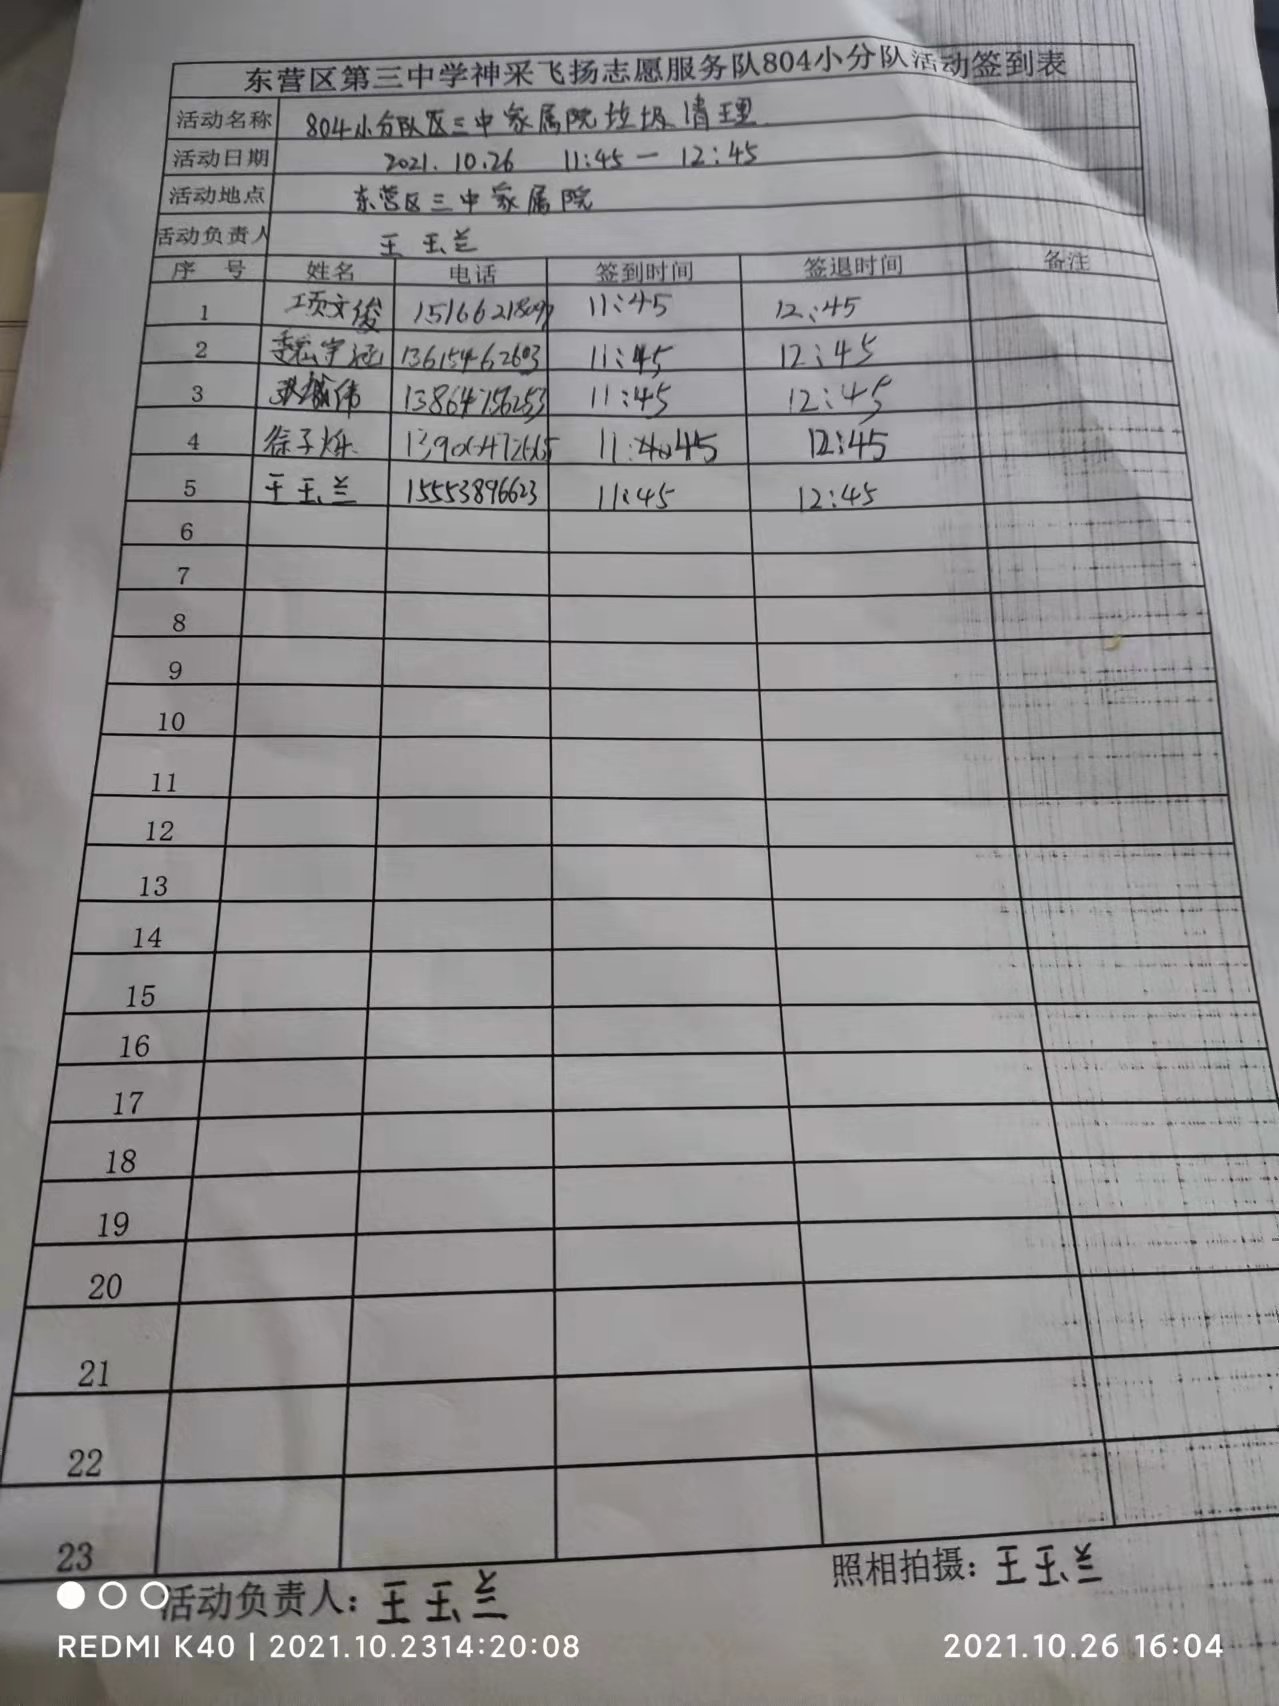 东营区第三中学神采飞扬志愿服务队804小分队活动签到表
活动名称 804小分队区三中家属院垃圾清理
活动日期 2021.10.26 11:45一12:45
活动地点 东营区三中家属院
活动负责人 王玉兰
序 号 姓名 电话 签到时间 签退时间 备注
1 项文俊 11:45 12:45
2 13615462603 11:45 12:45
3 13864756253 11:45 12:45
4 徐子烁 11:45 12:45
5 王玉兰 15553896623 11:45 12:45
6
7
8
9
10
11
12
13
14
15
16
17
18
19
20
21
22
23
活动负责人：王玉兰 照相拍摄：王玉兰
REDMI K40 | 2021.10.2314:20:08 2021.10.26 16:04